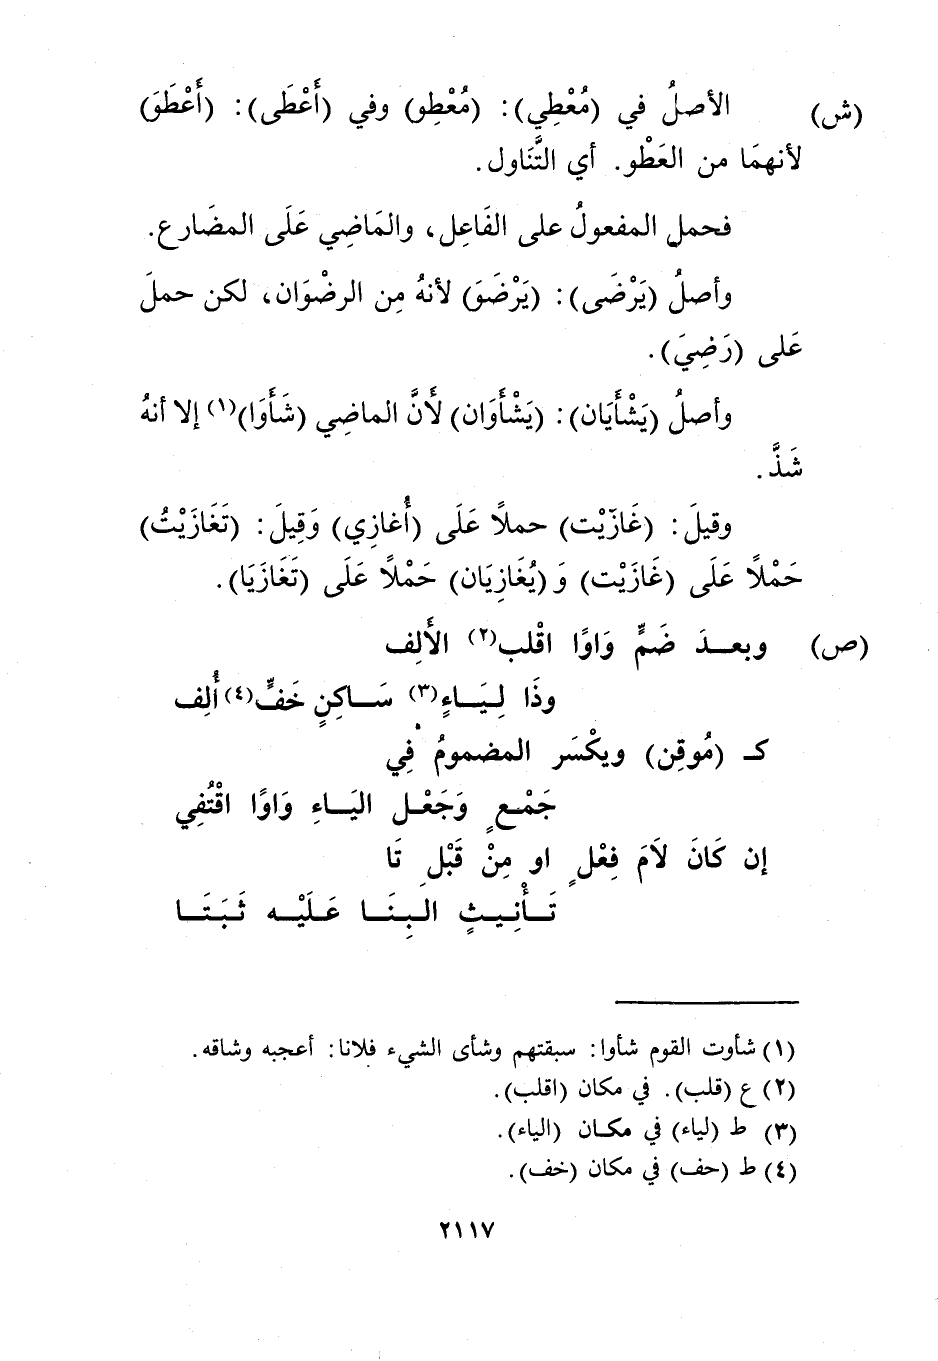 (ش) الأصلُ في (مُعْطِي): (مُعْطِو) وفي (أَعْطَى): (أَعْطَوَ)
لأنهمَا من العَطْو. أي التَّنَاول.
فحمل المفعولُ على الفَاعِل، والمَاضِي عَلَى المضَارع.
وأصلُ (يَرْضَى): (يَرْضَوَ) لأنهُ مِن الرضْوَان، لكن حملَ
عَلى (رَضِيَ).
وأصلُ (يَشْأَيَان): (يَشْأَوَان) لأَنَّ الماضِي (شَأَوَا)(١) إلا أنهُ
شَذَّ.
وقيلَ: (غَازَيْت) حملاً عَلَى (أُغازِي) وَقِيلَ: (تَغَازَيْتُ)
حَمْلاً عَلَى (غَازَيْت) وَ (يُغَازِيَان) حَمْلاً عَلَى (تَغَازَيَا).
(ص) وبعــدَ ضَمٍّ وَاوًا اقْلب(٢) الأَلِف
وذَا لِيَــاءٍ(٣) سَــاكِنٍ خَفٍّ(٤) أُلِف
كـ (مُوقِن) ويكْسَر المضمومُ فِي
جَمْـعٍ وَجَعْـل اليَــاءِ وَاوًا اقْتُفِي
إن كَانَ لاَمَ فِعْلٍ او مِنْ قَبْلِ تَا
تَــأْنِيثٍ البِنَــا عَلَيْــه ثَبَتَــا
(١) شأوت القوم شأوا: سبقتهم وشأى الشيء فلانا: أعجبه وشاقه.
(٢) ع (قلب). في مكان (اقلب).
(٣) ط (لياء) في مكـان (الياء).
(٤) ط (حف) في مكان (خف).
٢١١٧